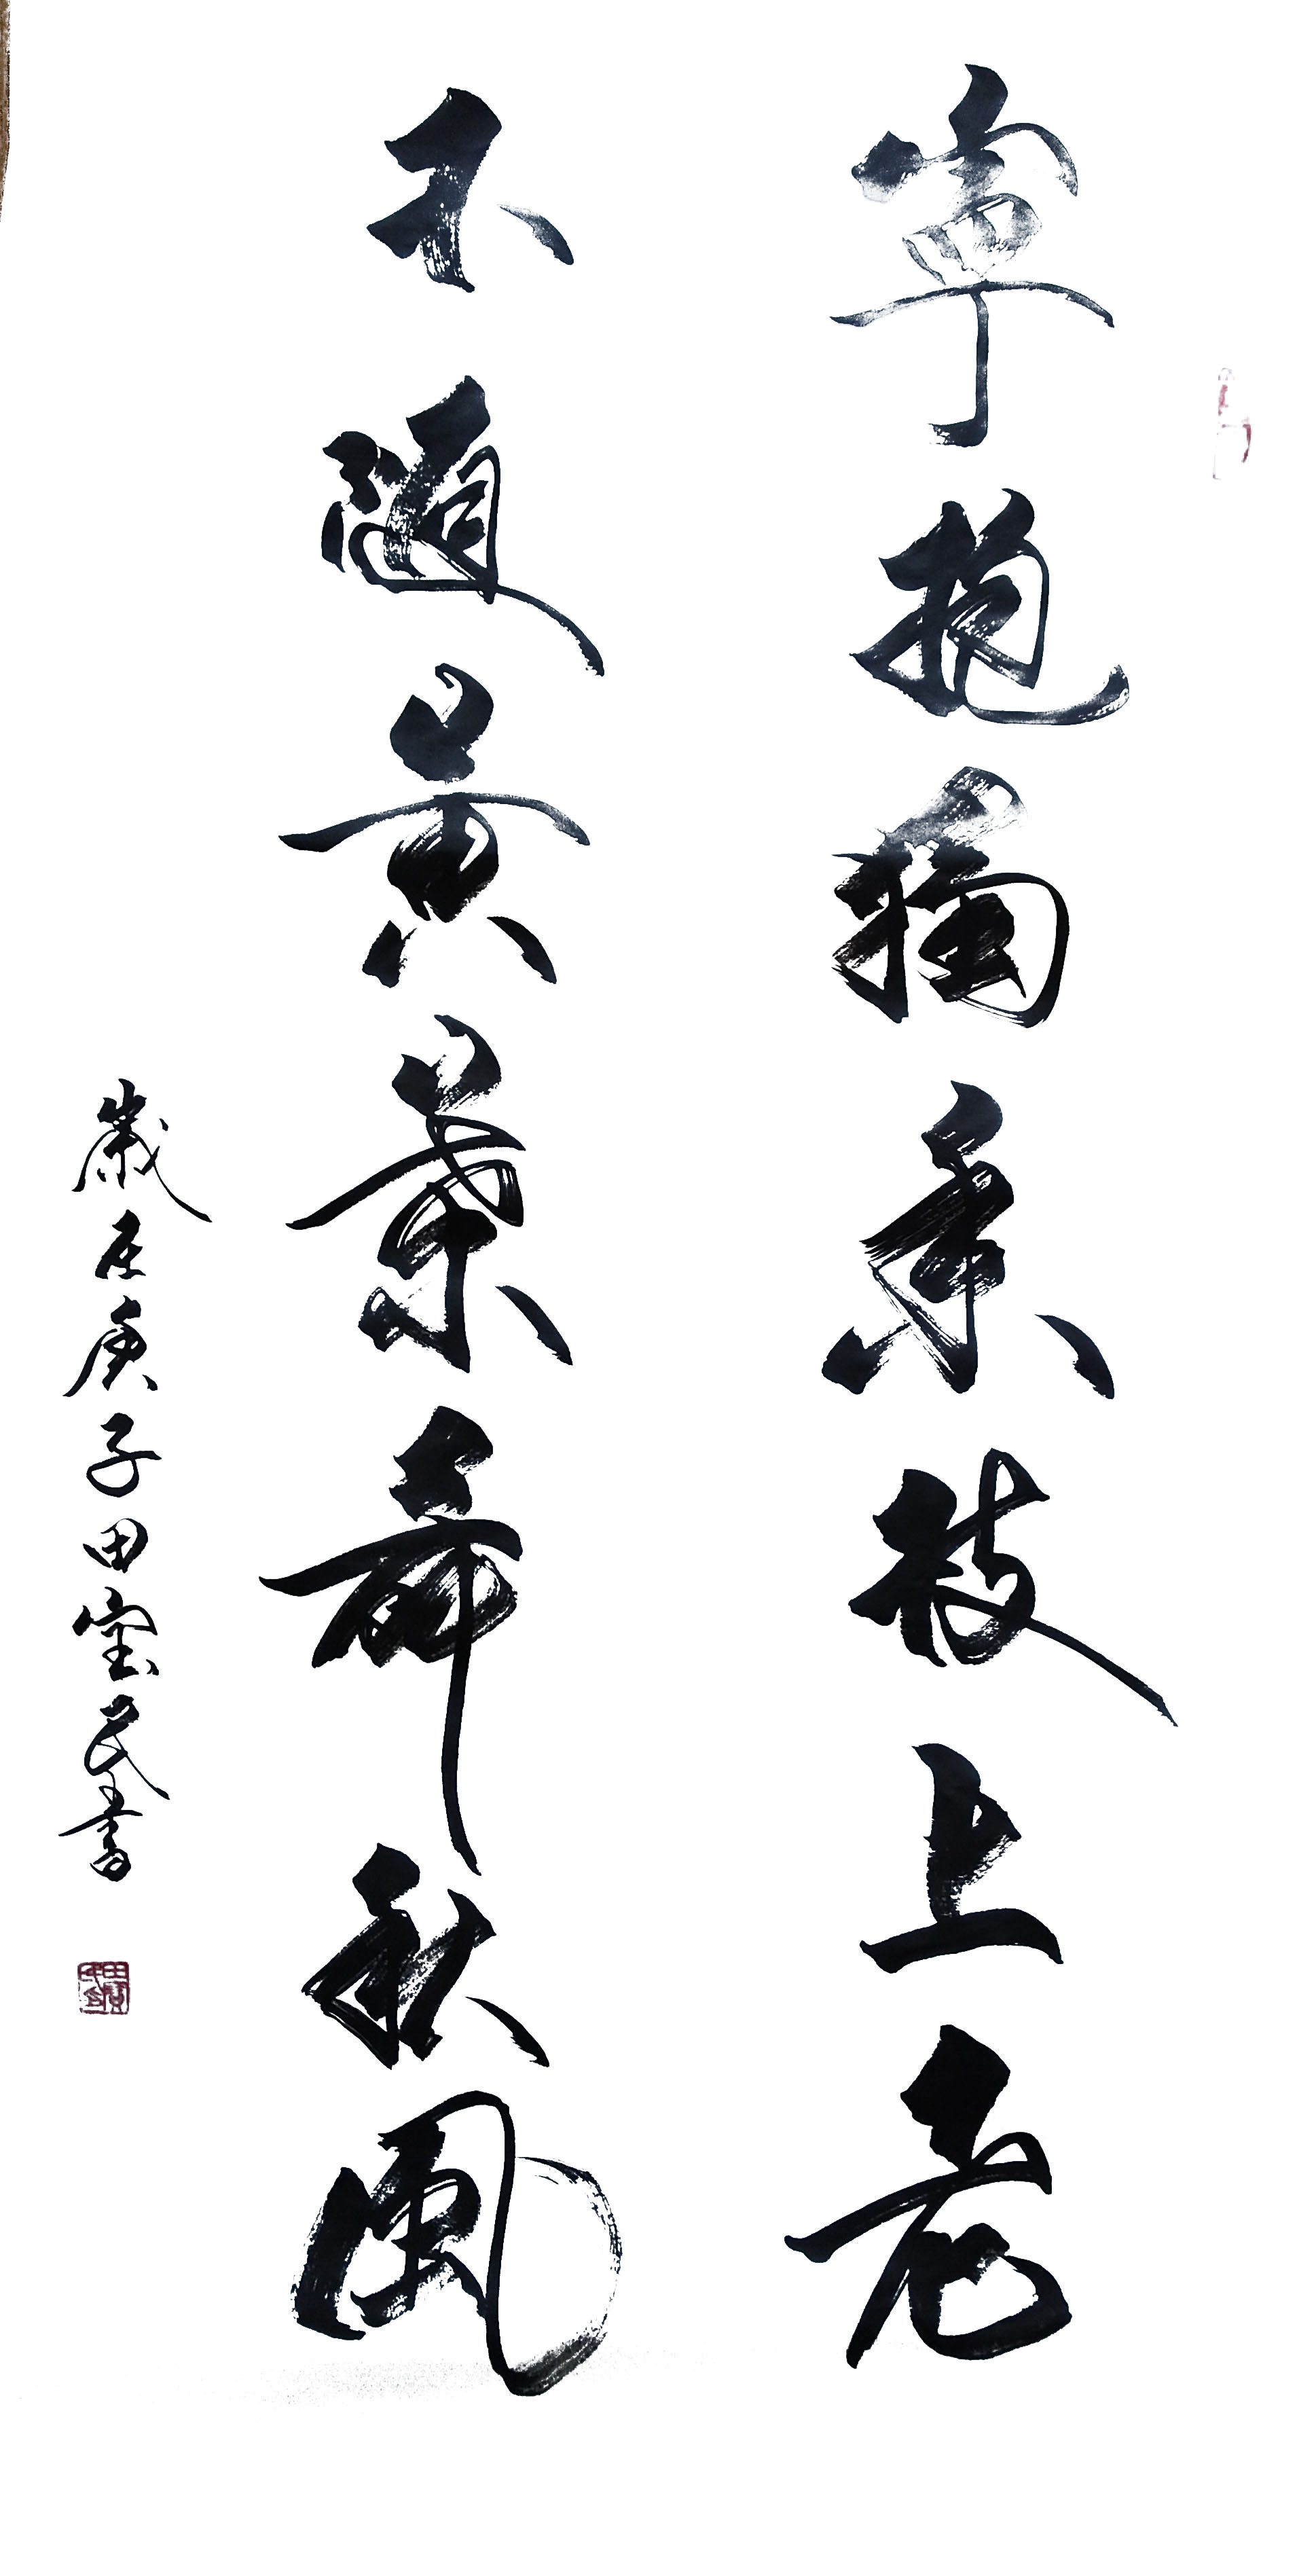 寧抱獨香枝上老
不隨黃葉舞秋風
歲在庚子田宝民書